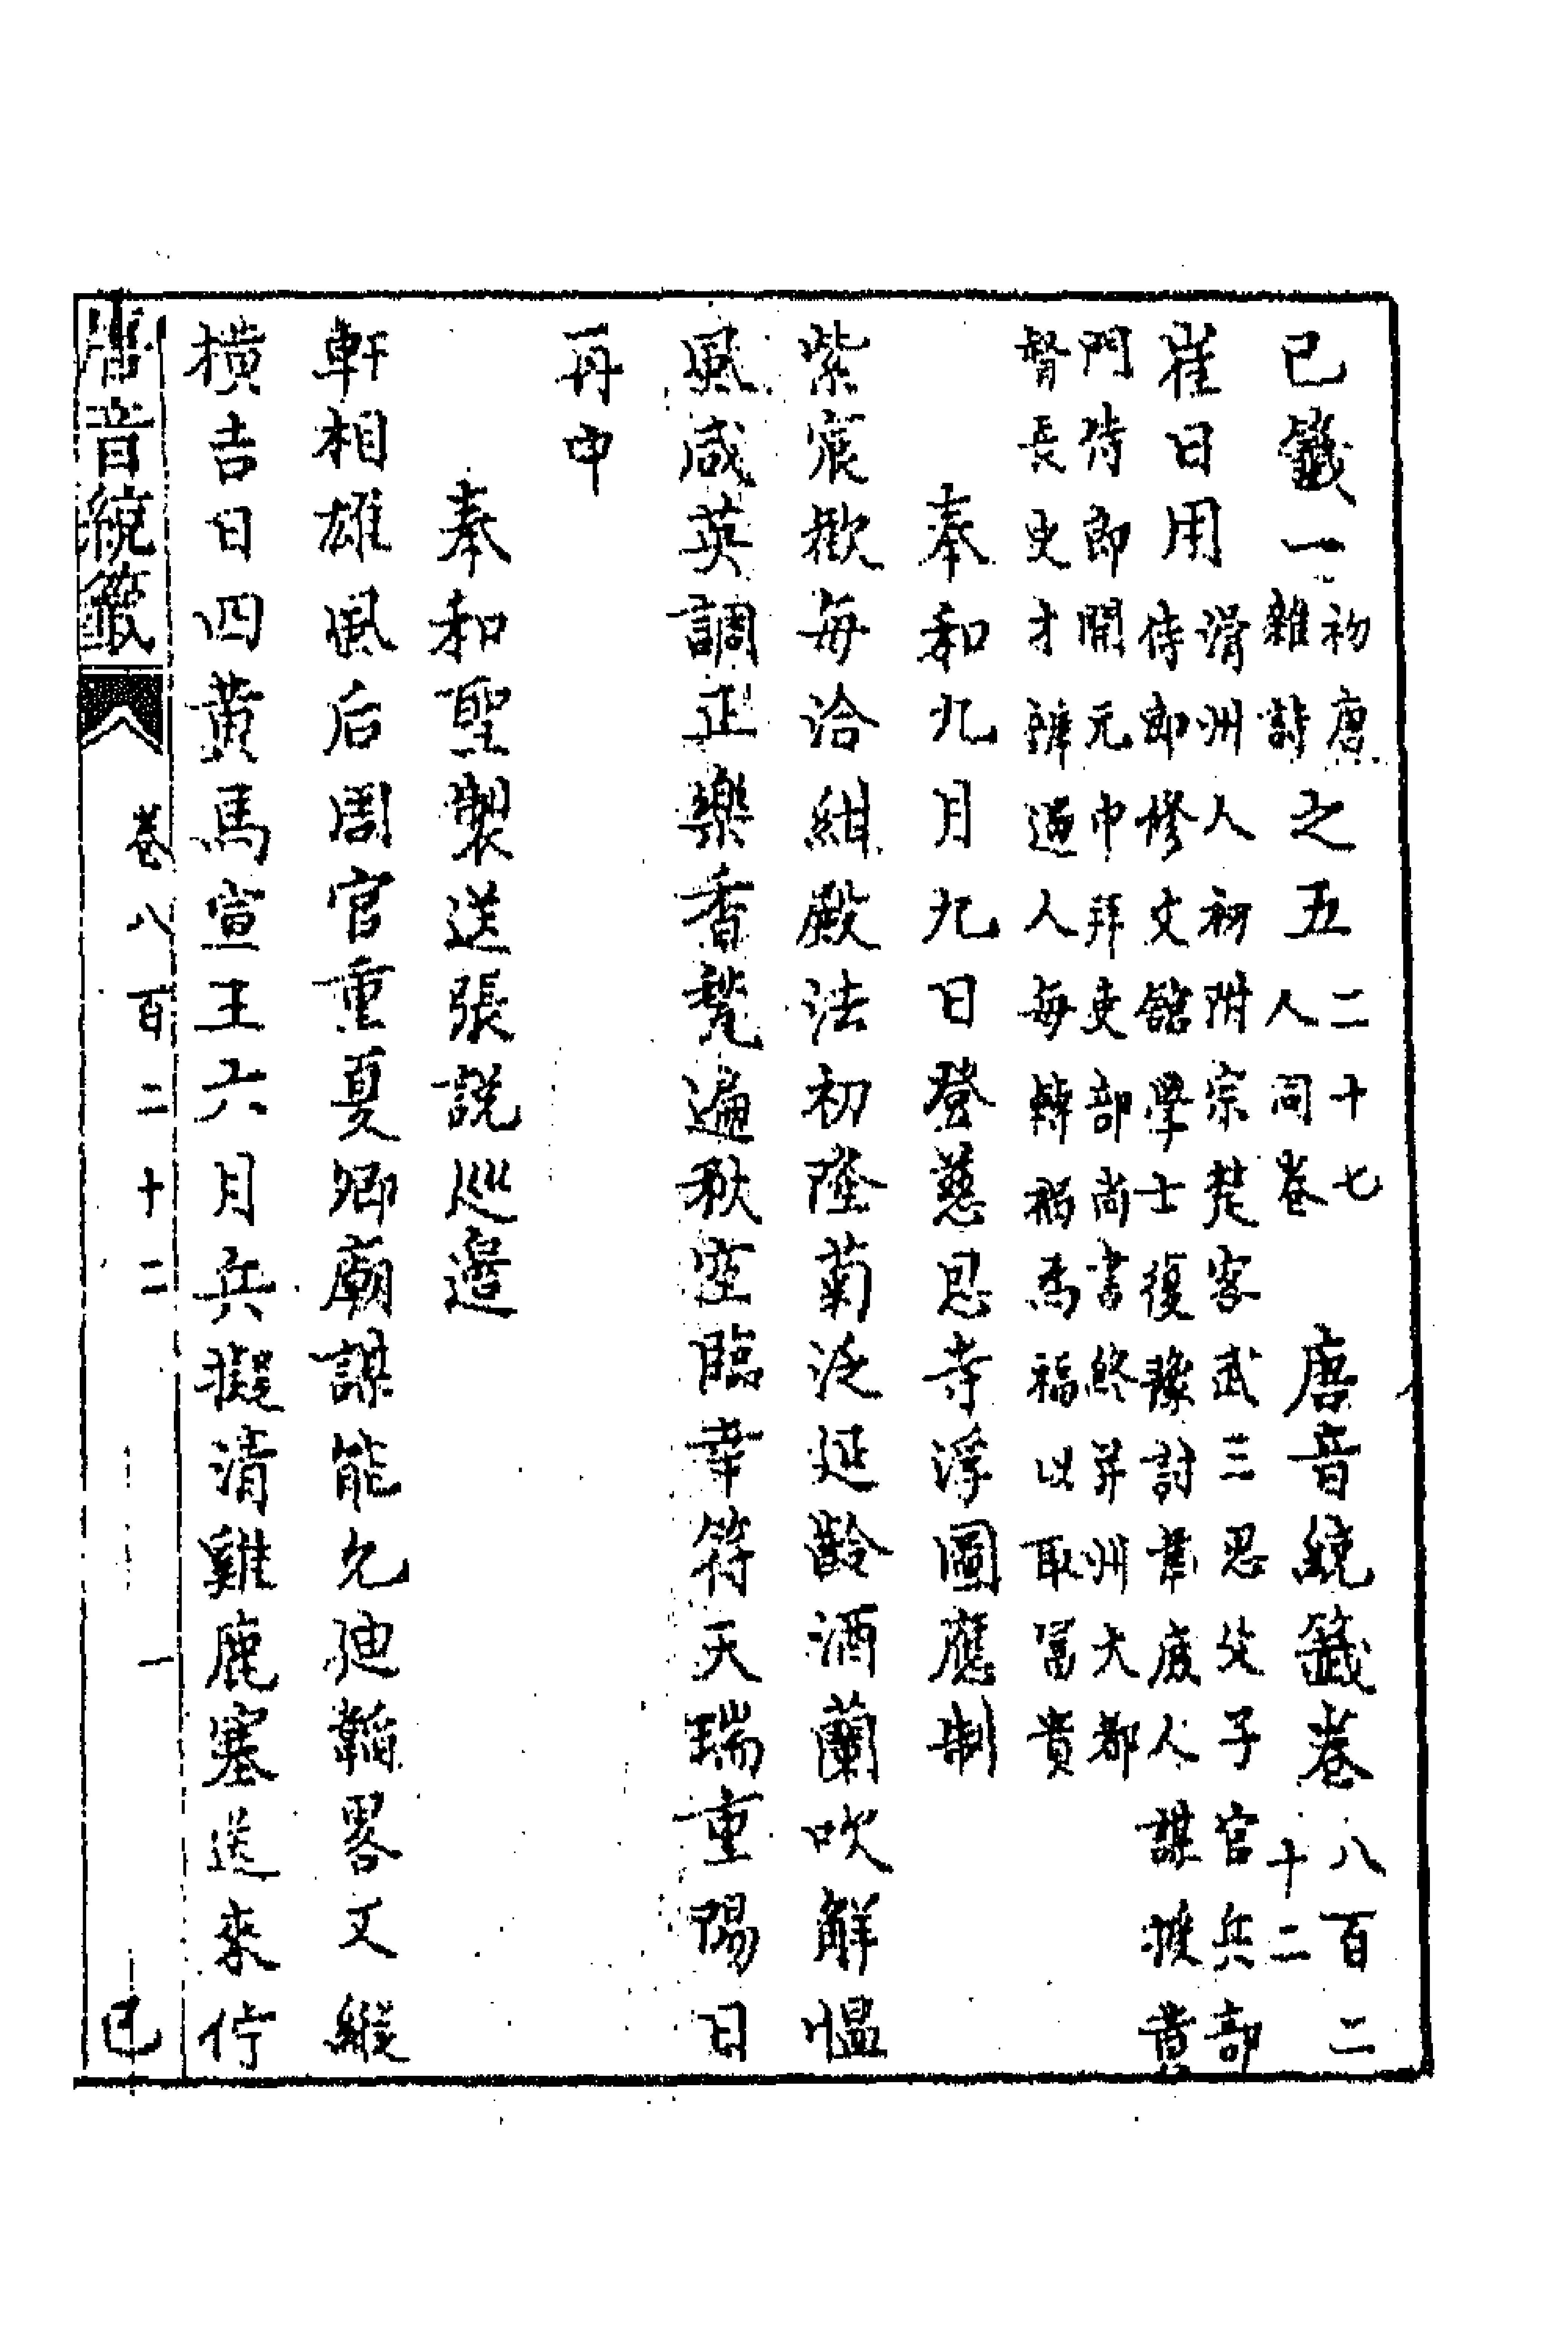 已籤一初唐雜詩之五二十七人同卷 唐音統籤卷八百二十二
崔日用 滑州人初附宗楚客武三思父子官兵部
侍郎修文舘學士復豫討韋庶人謀授黄
門侍郎開元中拜吏部尚書終并州大都
督長史才辯過人每轉禍爲福以取冨貴
奉和九月九日登慈恩寺浮圖應制
紫宸歡每洽紺殿法初隆菊泛延齡酒蘭吹解慍
風咸英調正樂香梵遍秋空臨幸符天瑞重陽日
再申
奉和聖製送張説巡邊
軒相雄風后周官重夏卿廟謀能允迪韜畧文縱
横吉日四黄馬宣王六月兵擬清雞鹿塞送來佇
唐音統籤 卷八百二十二 一 已